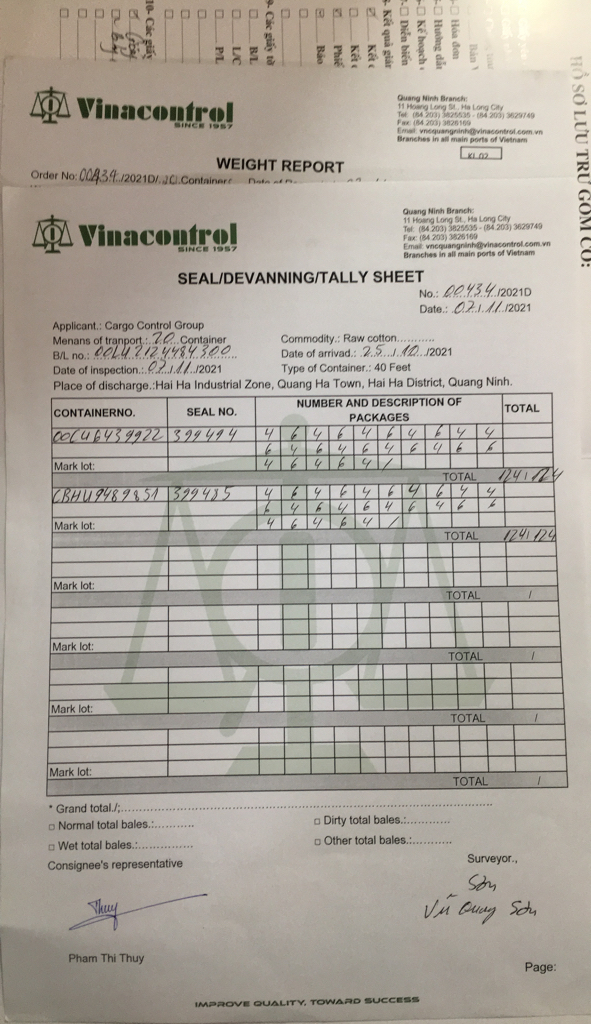 10- Các giấy
P/L
L/C
B/L
9- Các giấy tờ
Báo
Phiế
Kết c
Kết c
8- Kết quả giám
Diễn biến
Kế hoạch
Hướng dẫ
Hóa đơn
HỒ SƠ LƯU TRỮ GỒM CÓ:
Vinacontrol
SINCE 1957
Quang Ninh Branch:
11 Hoang Long St., Ha Long City
Tel: (84.203) 3825535 - (84.203) 3629749
Fax: (84.203) 3826169
Email: vncquangninh@vinacontrol.com.vn
Branches in all main ports of Vietnam
WEIGHT REPORT
Order No: 00434/2021D/ Container
Vinacontrol
SINCE 1957
Quang Ninh Branch:
11 Hoang Long St., Ha Long City
Tel: (84.203) 3825535 - (84.203) 3629749
Fax: (84.203) 3826169
Email: vncquangninh@vinacontrol.com.vn
Branches in all main ports of Vietnam
SEAL/DEVANNING/TALLY SHEET
No.: 00434/2021D
Date.: 02/11/2021
Applicant.: Cargo Control Group
Menans of tranport.: 20 Container
Commodity.: Raw cotton............
B/L no.: OOLU2124484300
Date of arrivad.: 25/10/2021
Date of inspection.: 02/11/2021
Type of Container.: 40 Feet
Place of discharge.:Hai Ha Industrial Zone, Quang Ha Town, Hai Ha District, Quang Ninh.
CONTAINERNO. SEAL NO. NUMBER AND DESCRIPTION OF PACKAGES TOTAL
OOCU6439922 399494 4 6 4 6 4 6 4 6 4 4
6 4 6 4 6 4 6 4 6 6
Mark lot: 4 6 4 6 4 /
TOTAL 124/124
CBHU9489851 399485 4 6 4 6 4 6 4 6 4 4
6 4 6 4 6 4 6 4 6 6
Mark lot: 4 6 4 6 4 /
TOTAL 124/124
Mark lot:
TOTAL /
Mark lot:
TOTAL /
Mark lot:
TOTAL /
Mark lot:
TOTAL /
* Grand total./;..........
□ Normal total bales.:...........
□ Dirty total bales.:............
□ Wet total bales.:...............
□ Other total bales.:...........
Consignee's representative
Surveyor.,
Thuy
Sơn
Vũ Quang Sơn
Pham Thi Thuy
Page:
IMPROVE QUALITY, TOWARD SUCCESS